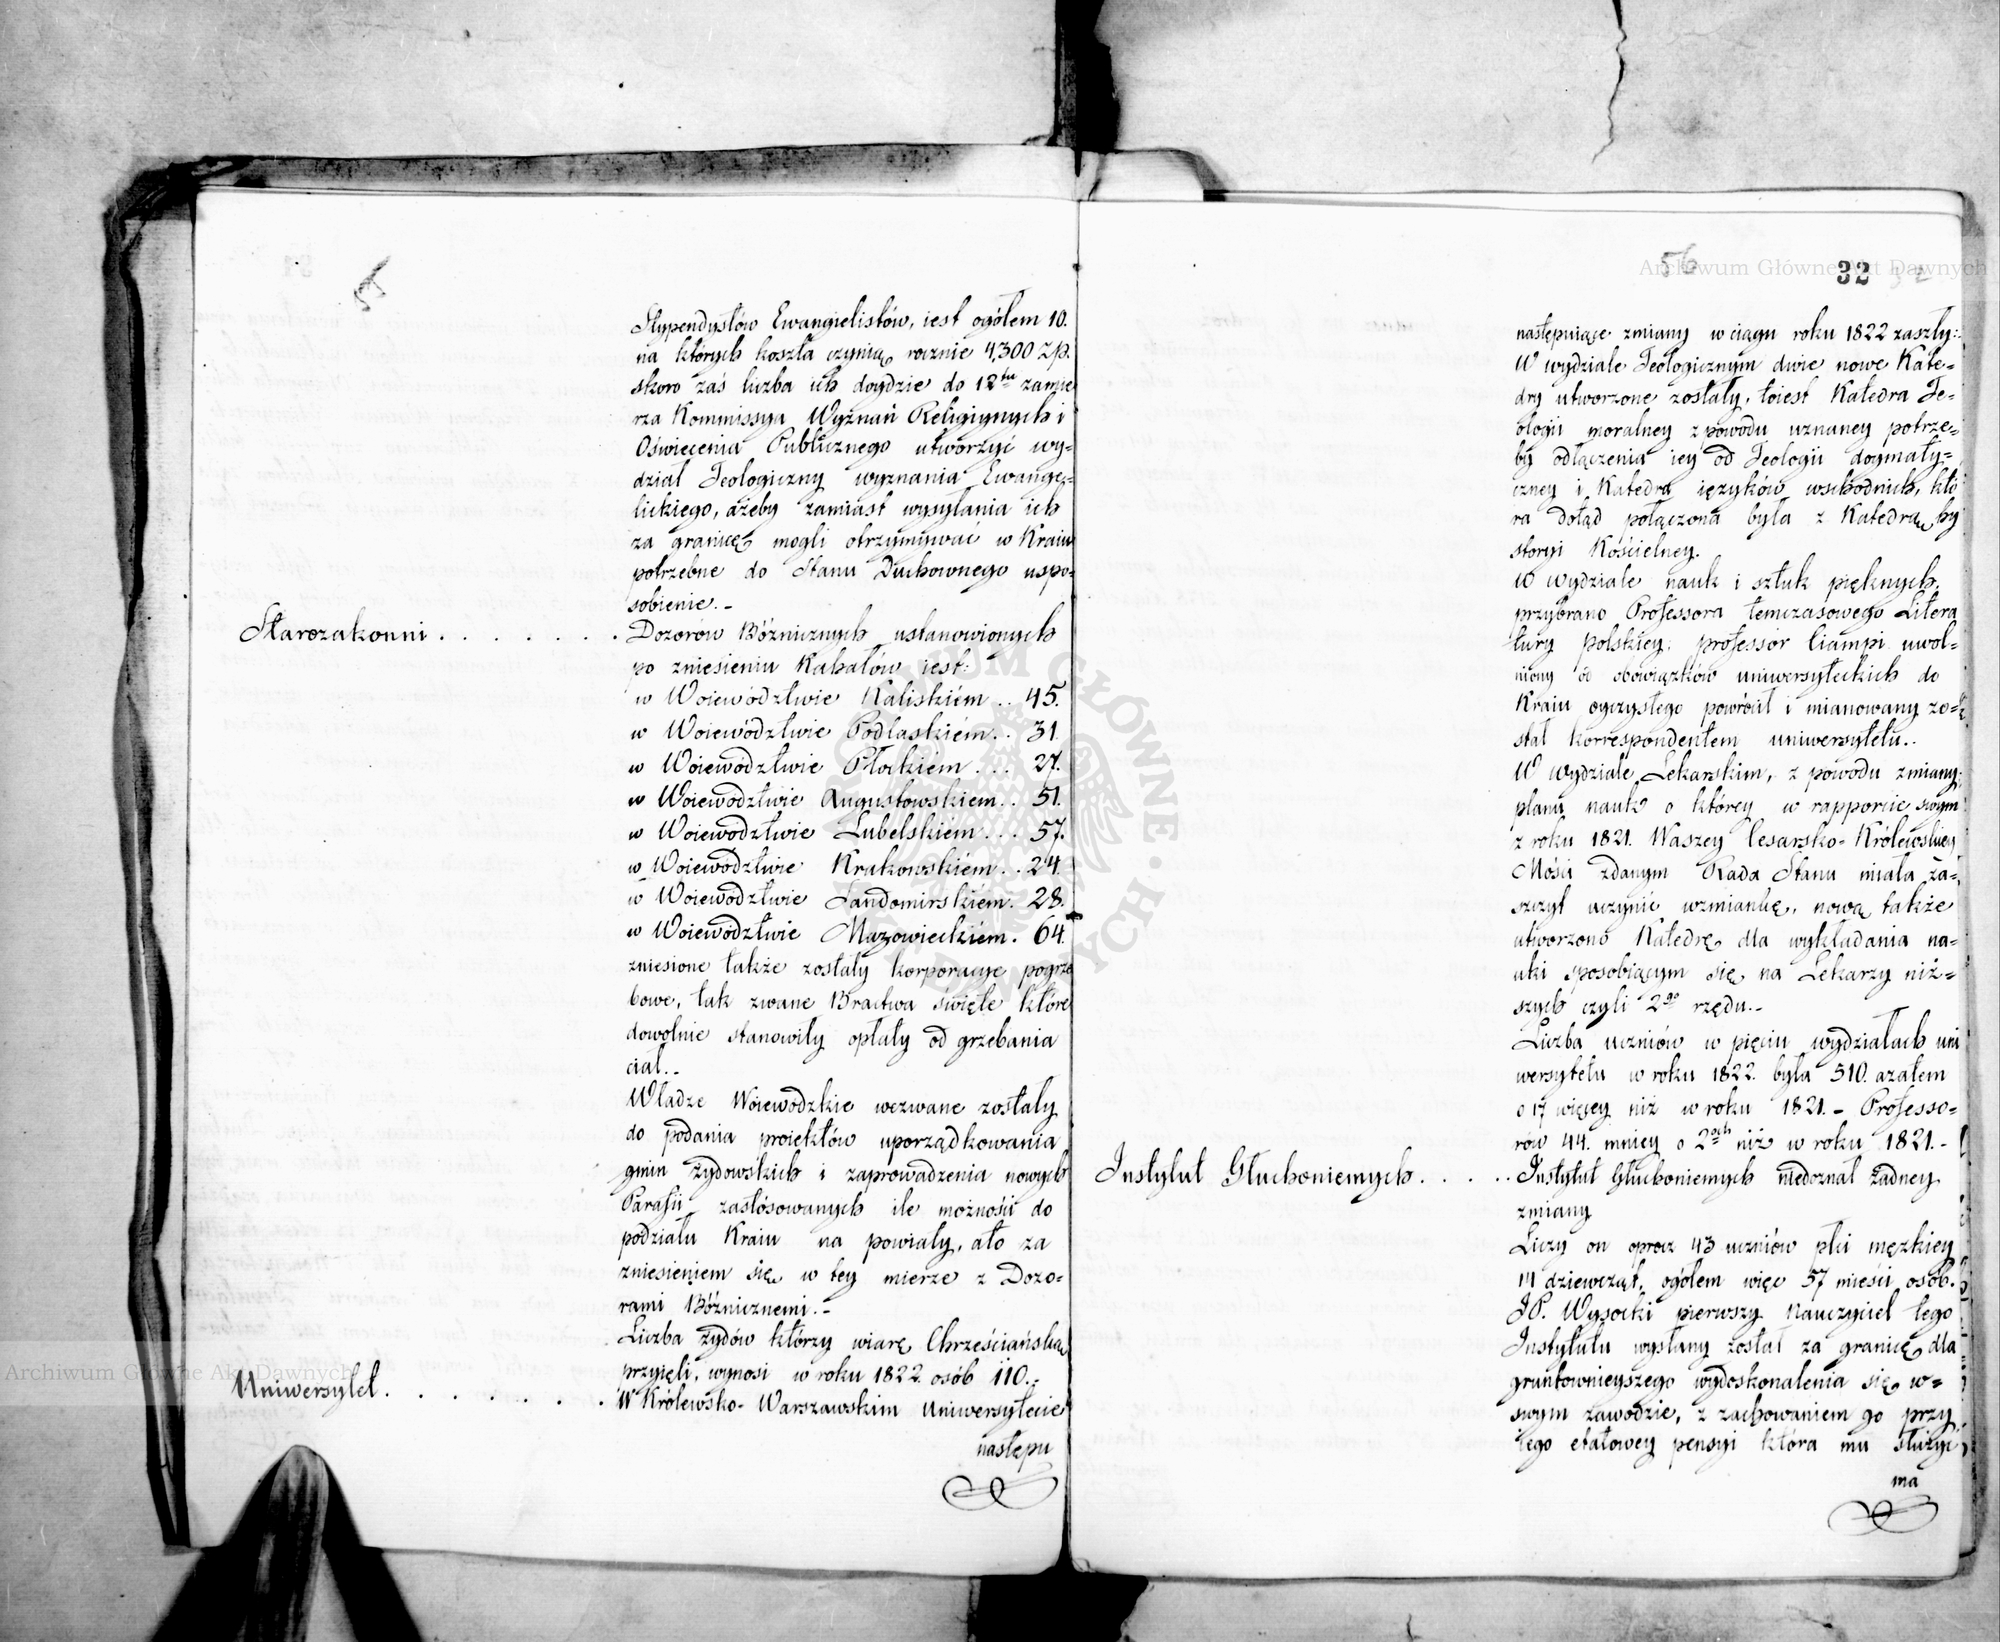 55
Stypendystów Ewangielistów, iest ogółem 10.
na których koszta czynią rocznie 4,300 zp.
skoro zaś liczba ich doydzie do 12tu zamie
rza Kommissya Wyznań Religiynych i
Oświecenia Publicznego utworzyć wy=
dział Teologiczny wyznania Ewange=
lickiego, ażeby zamiast wysyłania ich
za granicę mogli otrzymywać w Kraiu
potrzebne do Stanu Duchownego uspo=
sobienie.-
Starozakonni . . . . . . . Dozorów Bóżnicznych ustanowionych
po zniesieniu Kahałów iest:
w Woiewództwie Kaliskiém .. 45.
w Woiewództwie Podlaskiém .. 31.
w Woiewództwie Płockiem ... 27.
w Woiewództwie Augustowskiem .. 51.
w Woiewództwie Lubelskiem ... 57.
w Woiewództwie Krakowskiém .. 24.
w Woiewództwie Sandomirskiém. 28.
w Woiewództwie Mazowieckiém. 64.
zniesione także zostały korporacye pogrze
bowe, tak zwane Bractwa święte które
dowolnie stanowiły opłaty od grzebania
ciał.-
Władze Woiewódzkie wezwane zostały
do podania proiektów uporządkowania
gmin żydowskich i zaprowadzenia nowych
Parafii zastósowanych ile możności do
podziału Kraiu na powiaty, ato za
zniesieniem się w tey mierze z Dozo=
rami Bóżnicznemi.-
Liczba żydów którzy wiarę Chrześciańską
przyięli, wynosi w roku 1822 osób 110.-
Uniwersytet. . . . . . . W Królewsko-Warszawskim Uniwersytecie
następu
56
32
32
następuiące zmiany w ciągu roku 1822 zaszły:
W wydziale Teologicznym dwie nowe Kate=
dry utworzone zostały, toiest Katedra Te=
ologii moralney z powodu uznaney potrze=
by odłączenia iey od Teologii dogmaty=
czney i Katedra ięzyków wschodnich, któ
ra dotąd połączona była z Katedrą hy
storyi Kościelney.
W wydziale nauk i sztuk pięknych,
przybrano Professora temczasowego Litera
tury polskiey; professor Ciampi uwol=
niony od obowiązków uniwersyteckich do
Kraiu oyczystego powrócił i mianowany zo=
stał korrespondentem uniwersytetu..
W wydziale Lekarskim, z powodu zmiany
planu nauk o którey w rapporcie swym
z roku 1821. Waszey Cesarsko-Królewskiey
Mości zdanym Rada Stanu miała za=
szczyt uczynić wzmiankę, nową także
utworzono Katedrę dla wykładania na=
uki sposobiącym się na Lekarzy niż=
szych czyli 2go rzędu.-
Liczba uczniów w pięciu wydziałach uni
wersytetu w roku 1822. była 510. azatem
o 17 więcey niż w roku 1821.- Professo=
rów 44. mniey o 2och niż w roku 1821.-
Instytut Głuchoniemych. . . . . Instytut Głuchoniemych niedoznał żadney
zmiany
Liczy on oprócz 43 uczniów płci męzkiey
14 dziewcząt, ogółem więc 57 mieści osób.
JP. Wysocki pierwszy Nauczyciel tego
Instytutu wysłany został za granicę dla
gruntownieyszego wydoskonalenia się w=
swym zawodzie, z zachowaniem go przy
iego etatowey pensyi która mu służyć
ma
Archiwum Główne Akt Dawnych
Archiwum Główne Akt Dawnych
ARCHIWUM GŁÓWNE AKT DAWNYCH